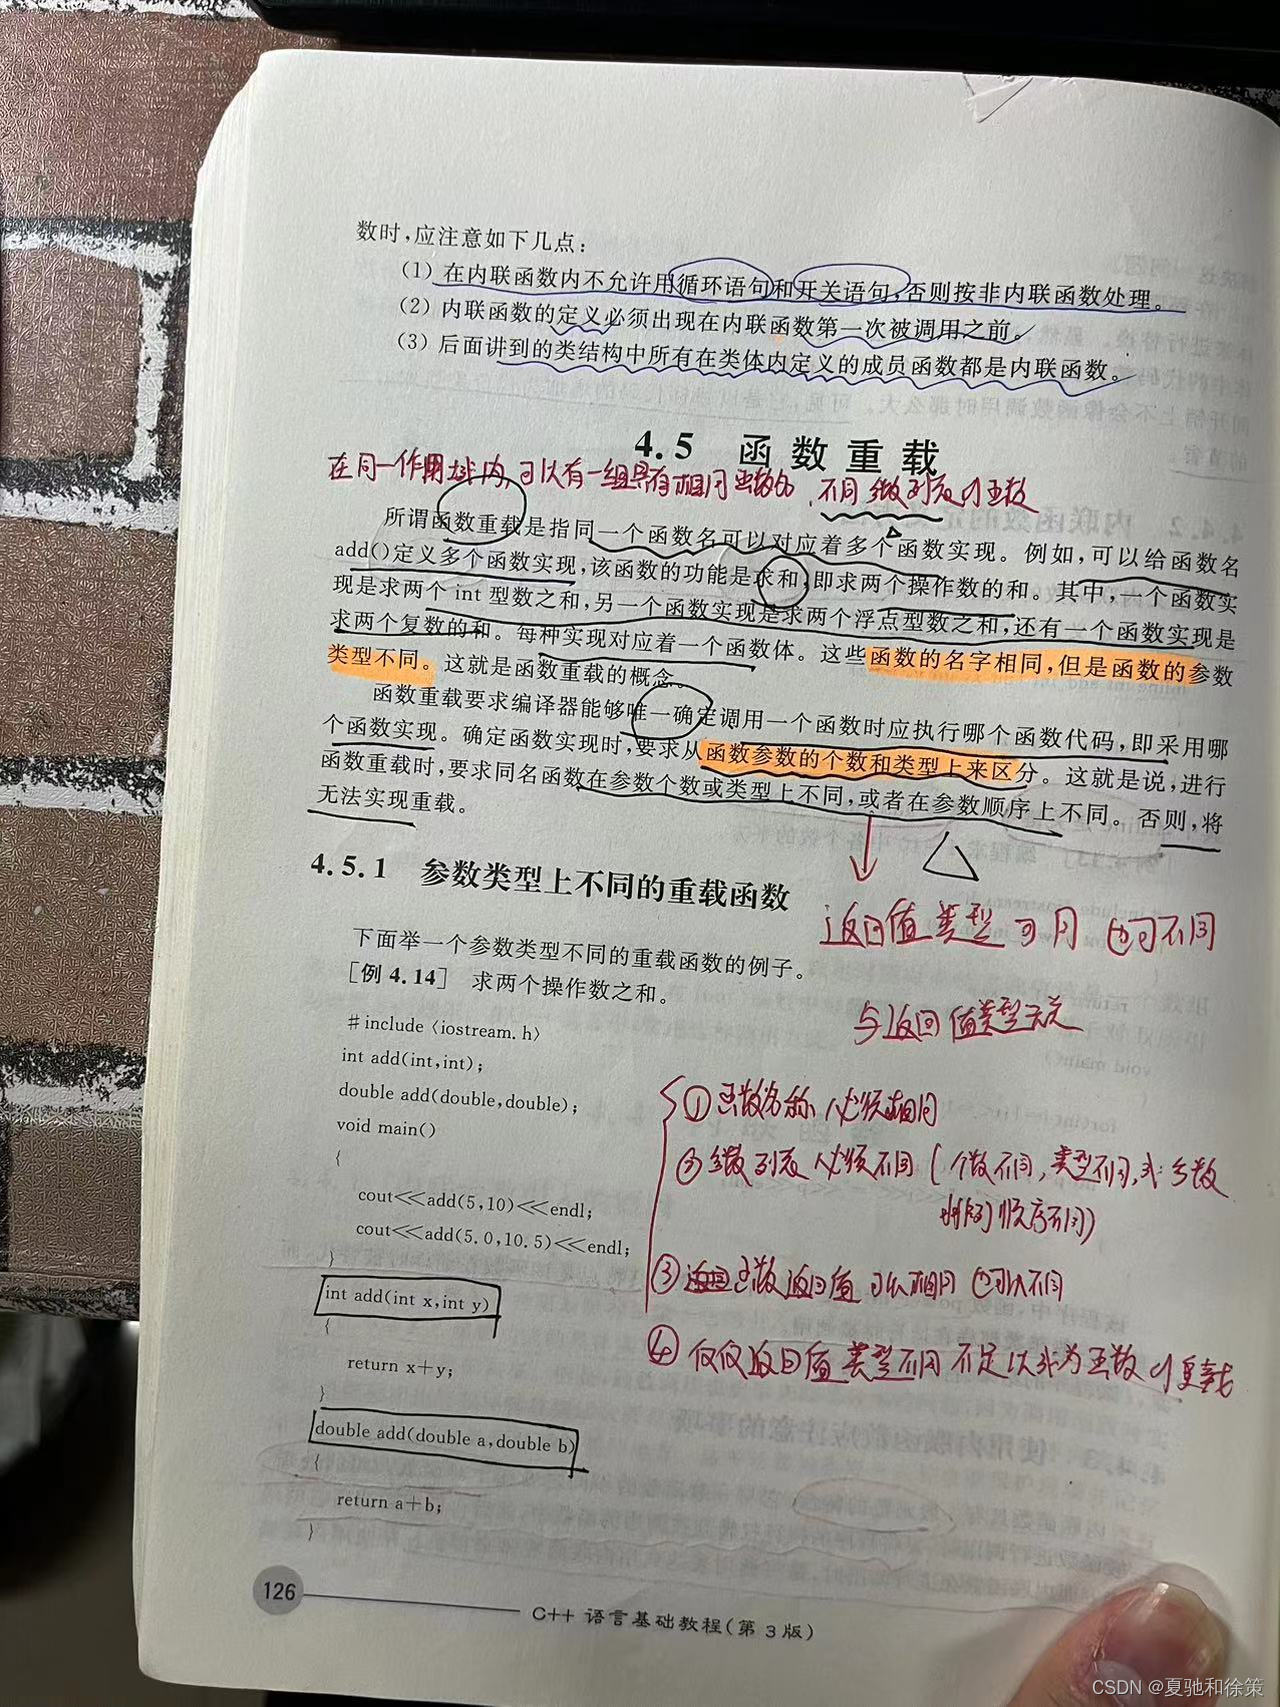 数时,应注意如下几点:
(1) 在内联函数内不允许用循环语句和开关语句,否则按非内联函数处理。
(2) 内联函数的定义必须出现在内联函数第一次被调用之前。
(3) 后面讲到的类结构中所有在类体内定义的成员函数都是内联函数。
4.5 函数重载
在同一作用域内,可以有一组具有相同函数名,不同参数列表的函数
所谓函数重载是指同一个函数名可以对应着多个函数实现。例如,可以给函数名
add()定义多个函数实现,该函数的功能是求和,即求两个操作数的和。其中,一个函数实
现是求两个int型数之和,另一个函数实现是求两个浮点型数之和,还有一个函数实现是
求两个复数的和。每种实现对应着一个函数体。这些函数的名字相同,但是函数的参数
类型不同。这就是函数重载的概念。
函数重载要求编译器能够唯一确定调用一个函数时应执行哪个函数代码,即采用哪
个函数实现。确定函数实现时,要求从函数参数的个数和类型上来区分。这就是说,进行
函数重载时,要求同名函数在参数个数或类型上不同,或者在参数顺序上不同。否则,将
无法实现重载。
4.5.1 参数类型上不同的重载函数
返回值类型可同 也可不同
下面举一个参数类型不同的重载函数的例子。
[例 4.14] 求两个操作数之和。
与返回值类型无关
#include <iostream.h>
int add(int,int);
double add(double,double);
void main()
{
cout<<add(5,10)<<endl;
cout<<add(5.0,10.5)<<endl;
}
int add(int x,int y)
{
return x+y;
}
double add(double a,double b)
{
return a+b;
}
①函数名称必须相同
②参数列表必须不同(个数不同,类型不同,或参数
排列顺序不同)
③函数返回值可以相同也可以不同
④仅仅返回值类型不同不足以成为函数的重载
126
C++ 语言基础教程(第3版)
CSDN @夏驰和徐策